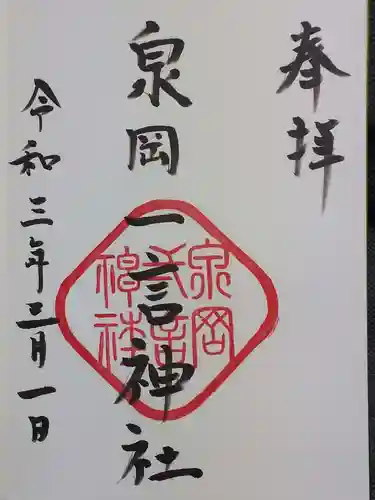 奉拝
泉岡一言神社
泉岡弌言神社
令和三年三月一日